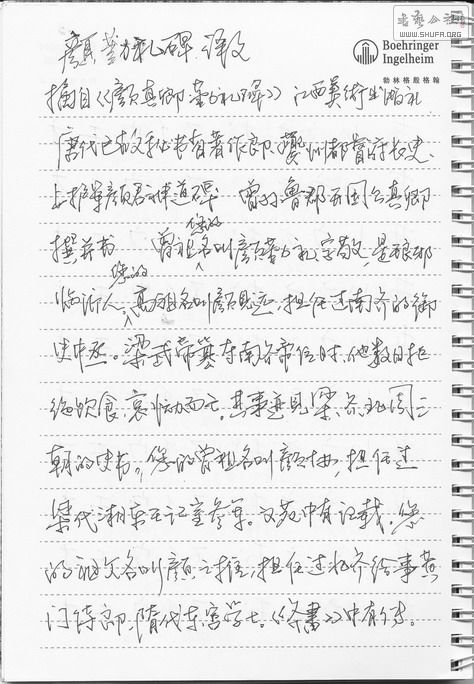 書藝公社
WWW.SHUFR.ORG
Boehringer
Ingelheim
勃林格殷格翰
颜勤礼碑 译文
摘自《颜真卿 勤礼碑》江西美术出版社
唐代已故秘书省著作郎、夔州都督府长史、
上护军颜君神道碑 曾孙鲁郡开国公真卿
撰并书 曾祖名叫颜勤礼,字敬,是琅邪
您的
临沂人。高祖名叫颜见远,担任过南齐的御
您的
史中丞。梁武帝篡夺南齐帝位时,他数日拒
绝饮食,哀恸而亡。其事迹见梁、齐、北周三
朝的史书。您的曾祖名叫颜协,担任过
梁代湘东王记室参军。文苑中有记载。您
的祖父名叫颜之推,担任过北齐给事黄
门侍郎、隋代东宫学士。《齐书》中有传。